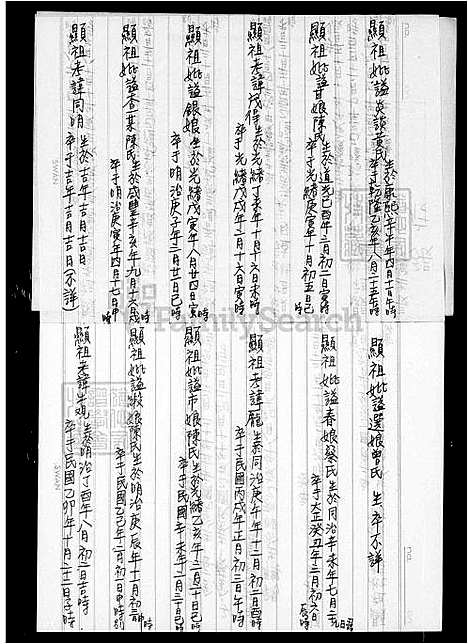 顯祖妣謚炎談黃民 生於康熙辛卯年四月十一午時
卒于乾隆乙亥年八月二十五年時
顯祖妣謚甘娘陳民 生於道光己酉年二月初二日寅時
卒于光緒庚寅年十月初五日巳時
顯祖考諱茂得 生於光緒丁未年十月十六日未時
卒于光緒戊戌年二月十六日寅時
顯祖妣謚銀娘 生於光緒戊寅年八月廿四日寅時
卒于明治庚子年三月廿日巳時
顯祖妣謚查某陳民 生於咸豐辛亥年九月十六戌時
卒于明治庚寅年四月十七日申時
顯祖考諱同明 生於吉年吉月吉日
卒于吉年吉月吉日(不詳)
顯祖妣謚選娘曾民 生卒不詳
顯祖妣謚春娘蔡民 生於同治辛未年七月
卒于大正癸丑年三月初六日辰時
顯祖考諱龍 生於同治庚午年十二月初二日酉時
卒于民國丙戌年正月初三日午時
顯祖妣謚市娘陳民 生於光緒乙亥年二月十日巳時
卒于民國辛未年二月三十日巳時
顯祖妣謚 娘陳民 生於明治庚辰年十月初三 時
卒于民國乙巳年二月初三日申時
顯祖考諱牛 生於明治丁酉年八月初二日吉時
卒于民國乙卯年十月二十二日子時
FamilySearch